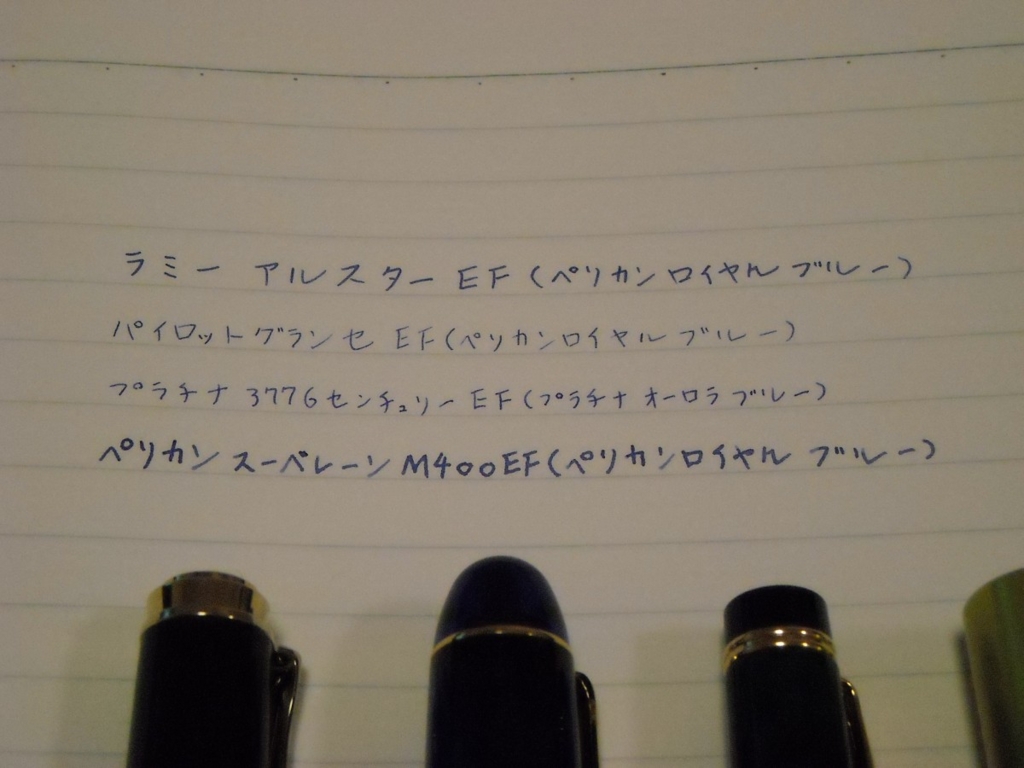 ラミー アルスターEF(ペリカンロイヤルブルー)
パイロットグランセ EF(ペリカンロイヤルブルー)
プラチナ 3776センチュリーEF(プラチナオーロラブルー)
ペリカン スーベレーンM400EF(ペリカンロイヤルブルー)